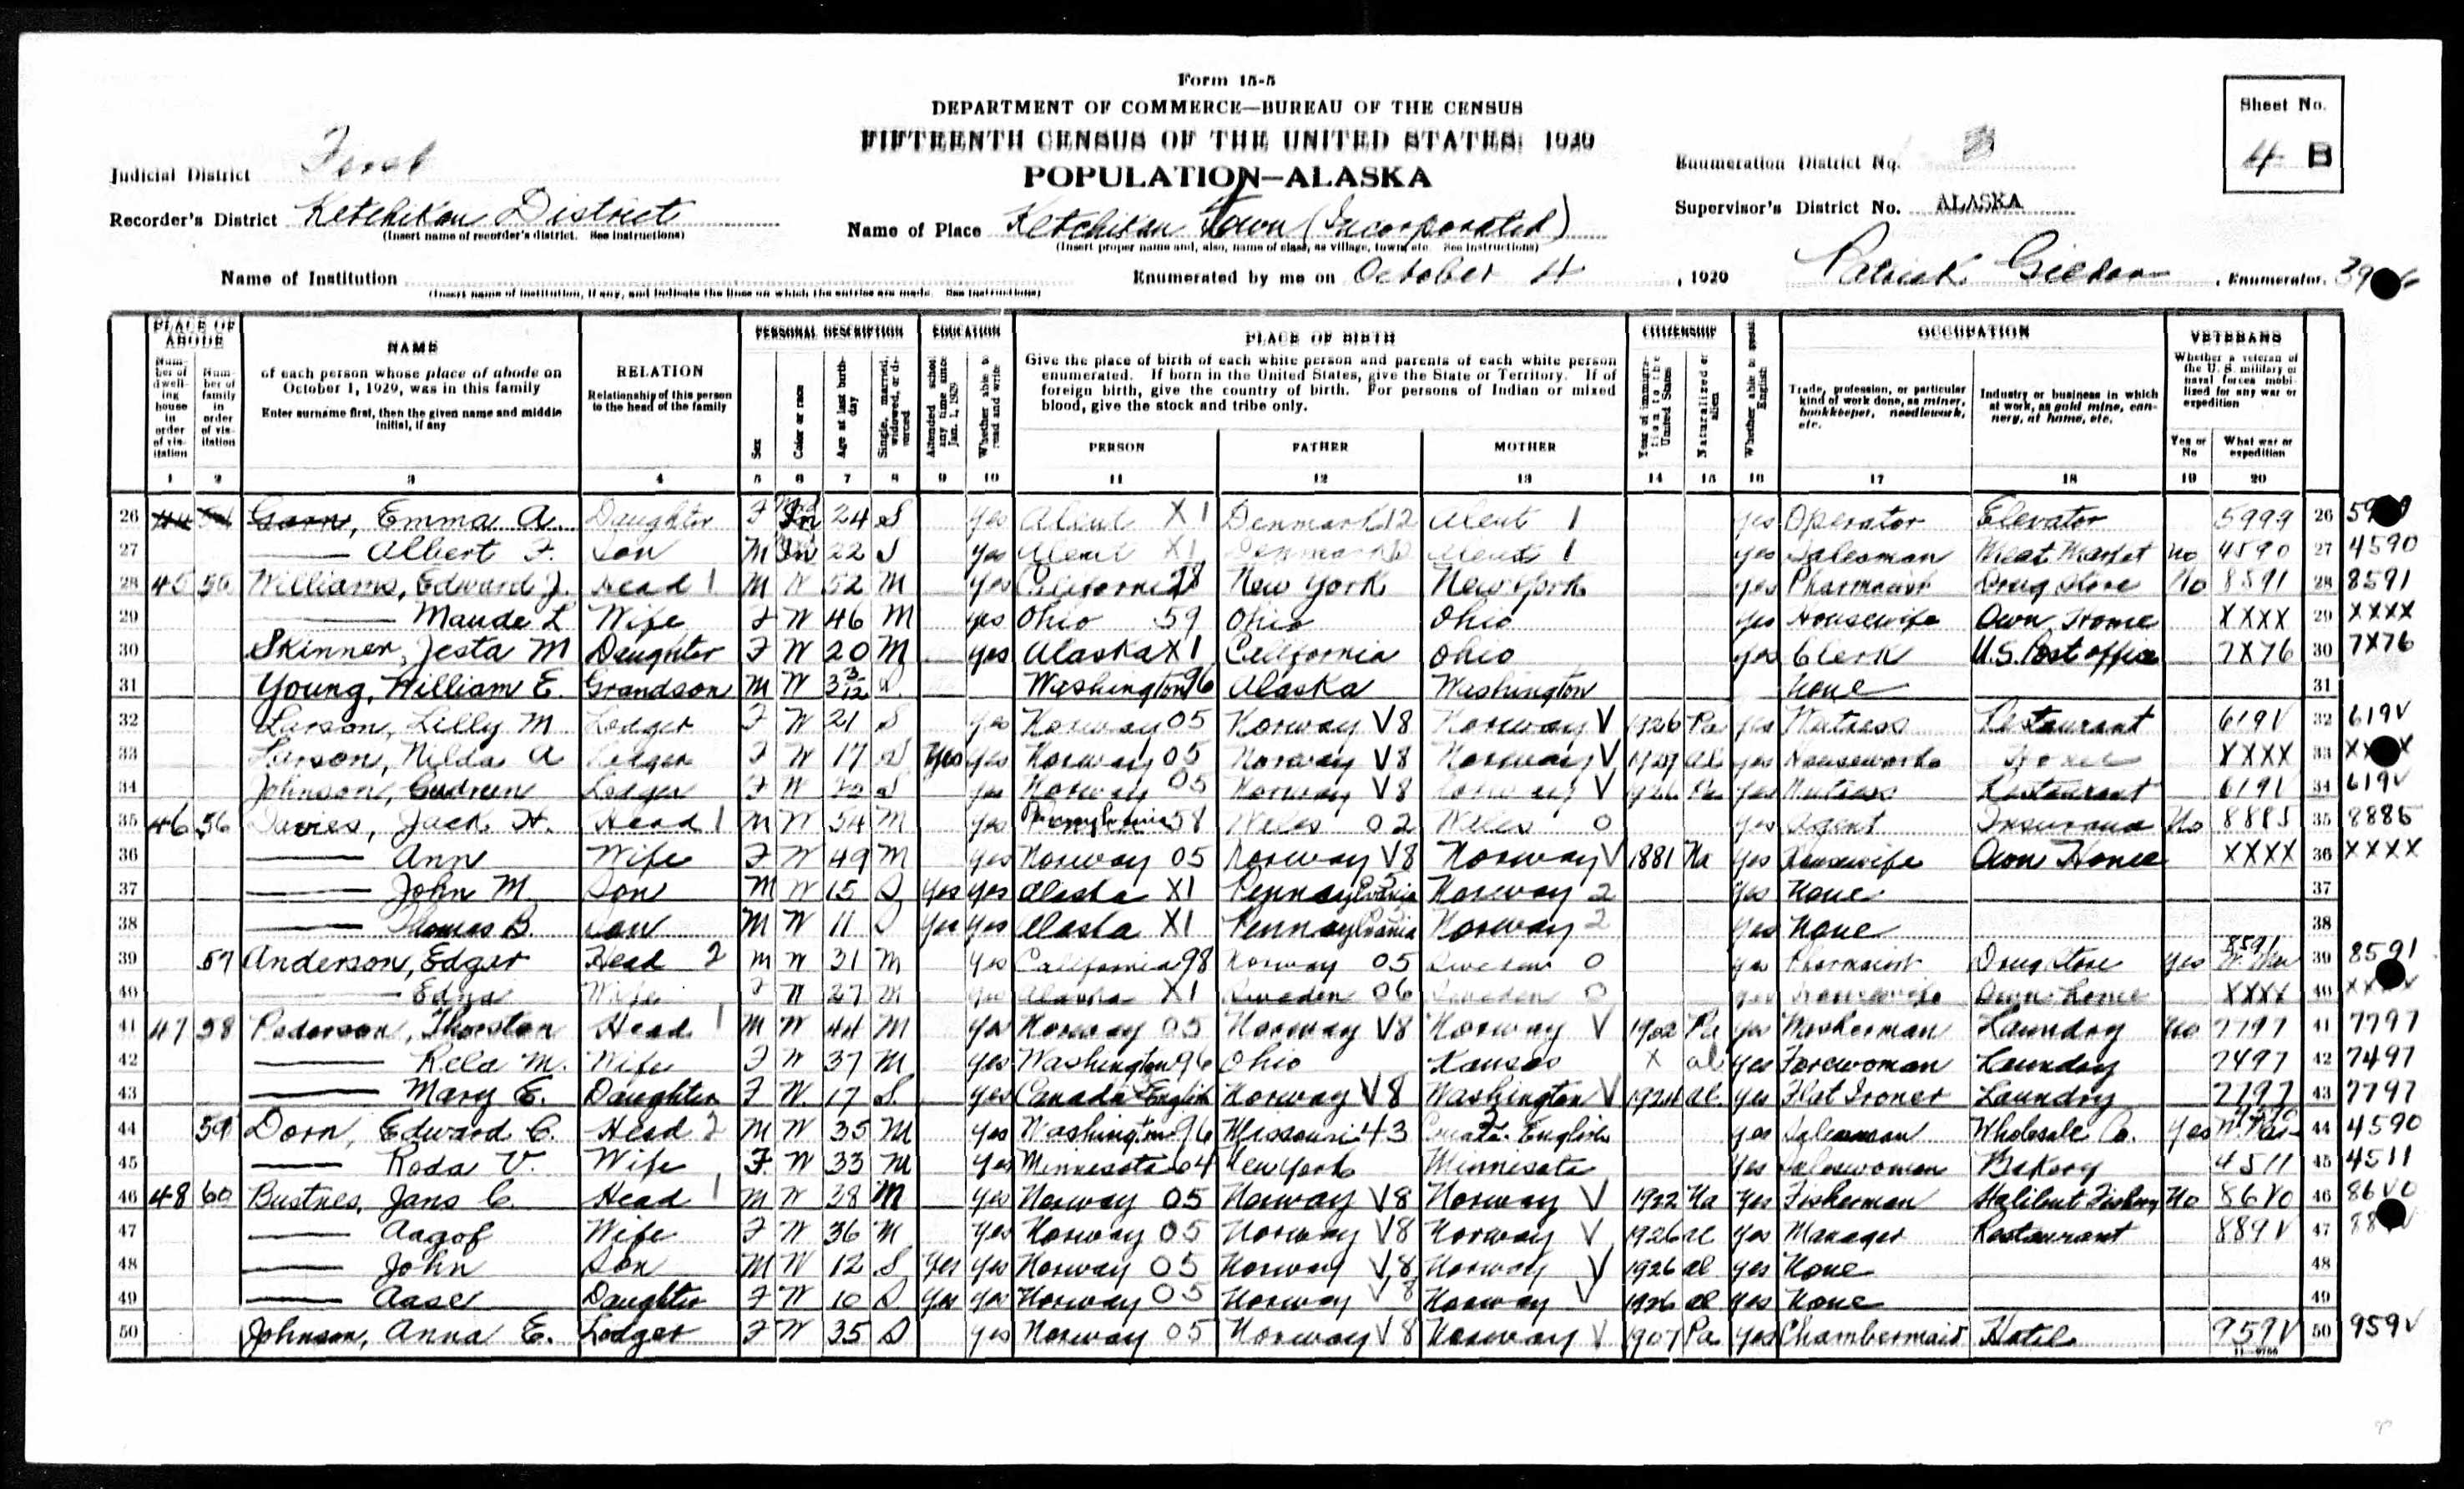 Form 15-5
DEPARTMENT OF COMMERCE—BUREAU OF THE CENSUS
FIFTEENTH CENSUS OF THE UNITED STATES: 1929
POPULATION—ALASKA
Sheet No.
4 B
Judicial District First
Enumeration District No.
Recorder's District Ketchikan District
(Insert name of recorder's district. See instructions)
Name of Place Ketchikan Town (Incorporated)
(Insert proper name and, also, name of class, as village, town, etc. See instructions)
Supervisor's District No. ALASKA
Name of Institution
(Insert name of institution, if any, and indicate the lines on which the entries are made. See instructions)
Enumerated by me on October 4, 1929 Patrick , Enumerator.
PLACE OF ABODE
NAME
RELATION
PERSONAL DESCRIPTION
EDUCATION
PLACE OF BIRTH
CITIZENSHIP
OCCUPATION
VETERANS
Number of dwelling house in order of visitation
Number of family in order of visitation
of each person whose place of abode on October 1, 1929, was in this family
Enter surname first, then the given name and middle initial, if any
Relationship of this person to the head of the family
Sex
Color or race
Age at last birthday
Single, married, widowed, or divorced
Attended school any time since Jan. 1, 1929
Whether able to read and write
Give the place of birth of each white person and parents of each white person enumerated. If born in the United States, give the State or Territory. If of foreign birth, give the country of birth. For persons of Indian or mixed blood, give the stock and tribe only.
PERSON FATHER MOTHER
Year of immigration to the United States
Naturalized or alien
Whether able to speak English
Trade, profession, or particular kind of work done, as miner, bookkeeper, needlework, etc.
Industry or business in which at work, as gold mine, cannery, at home, etc.
Whether a veteran of the U. S. military or naval forces mobilized for any war or expedition
Yes or No
What war or expedition
1 2 3 4 5 6 7 8 9 10 11 12 13 14 15 16 17 18 19 20
26 Emma A. Daughter F In 24 S yes Aleut X1 Denmark 12 Aleut 1 yes Operator Elevator 5999 26
27 — Albert F. Son M In 22 S yes Aleut X1 Denmark Aleut 1 yes Salesman Meat Market no 4590 27 4590
28 45 55 Williams, Edward J. Head 1 M W 52 M yes California New York New York yes Pharmacist Drug Store No 8591 28 8591
29 — Maude L Wife F W 46 M yes Ohio 59 Ohio Ohio yes Housewife Own Home XXXX 29 XXXX
30 Skinner, Jesta M Daughter F W 20 M yes Alaska X1 California Ohio yes Clerk U.S. Post office 7X76 30 7X76
31 Young, William E. Grandson M W 3 3/12 S Washington 96 Alaska Washington None 31
32 Larson, Lilly M Lodger F W 21 S yes Norway 05 Norway V8 Norway V 1926 Pa yes Waitress Restaurant 619V 32 619V
33 Larson, Hilda A Lodger F W 17 S Yes yes Norway 05 Norway V8 Norway V al yes Housework Home XXXX 33
34 Johnson, Gudrun Lodger F W S yes Norway 05 Norway V8 Norway V 1926 Pa yes Waitress Restaurant 619V 34 619V
35 46 56 Davies, Jack H. Head 1 M W 54 M yes Pennsylvania 58 Wales 02 Wales 0 yes Agent Insurance No 8885 35 8885
36 — Ann Wife F W 49 M yes Norway 05 Norway V8 Norway V 1881 Na yes Housewife Own Home XXXX 36 XXXX
37 — John M. Son M W 15 S yes yes Alaska X1 Pennsylvania Norway 2 yes None 37
38 — Thomas B. Son M W 11 S yes yes Alaska X1 Pennsylvania Norway 2 yes None 38
39 57 Anderson, Edgar Head 2 M W 31 M yes California 98 Norway 05 Sweden 0 yes Pharmacist Drug Store yes 8591 39 8591
40 — Edna Wife F W 27 M yes Alaska X1 Sweden 06 Sweden 0 yes Housewife Own home XXXX 40
41 47 58 Pederson, Thorston Head 1 M W 44 M yes Norway 05 Norway V8 Norway V 1902 Pa yes Washerman Laundry No 7797 41 7797
42 — Rela M. Wife F W 37 M yes Washington 96 Ohio Kansas X al yes Forewoman Laundry 7497 42 7497
43 — Mary E. Daughter F W 17 S. yes Canada English Norway V8 Washington V 1924 al. yes Flat Ironer Laundry 7797 43 7797
44 59 Dorn, Edward C. Head 2 M W 35 M yes Washington 96 Missouri 43 English yes Salesman Wholesale Co. Yes 44 4590
45 — Roda V. Wife F. W 33 M yes Minnesota 64 New York Minnisota yes Saleswoman Bakery 4511 45 4511
46 48 60 Bustnes, Jans C. Head 1 M W 38 M yes Norway 05 Norway V8 Norway V 1922 Na yes Fisherman Halibut Fishery No 86V0 46 86V0
47 — Aagot Wife F W 36 M yes Norway 05 Norway V8 Norway V 1926 al yes Manager Restaurant 889V 47
48 — John Son M W 12 S yes yes Norway 05 Norway V8 Norway V 1926 al yes None 48
49 — Aase Daughter F W 10 S yes yes Norway 05 Norway V8 Norway V 1926 al yes None 49
50 Johnson, Anna E. Lodger F W 35 S yes Norway 05 Norway V8 Norway V 1907 Pa yes Chambermaid Hotel 959V 50 959V